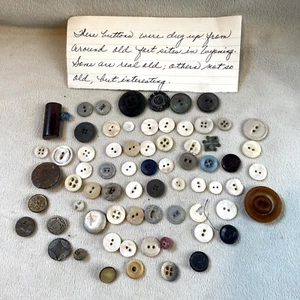 These buttons were dug up from
around old fort sites in Wyoming.
Some are real old; others not so
old, but interesting.